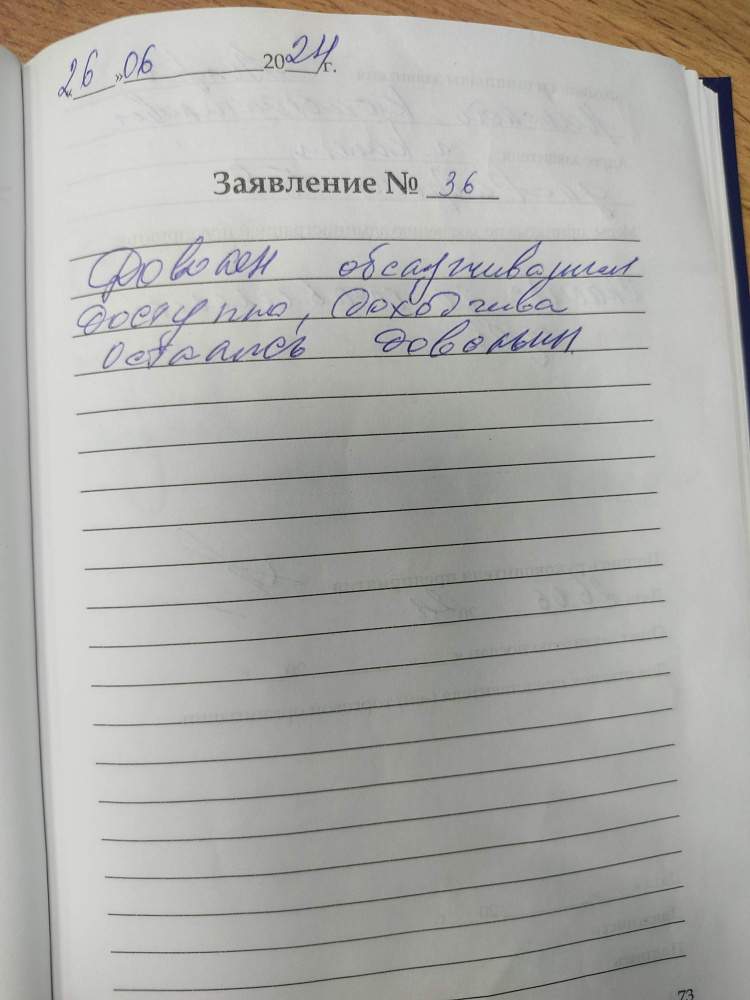 «26» 06 2024 г.
Заявление № 36
Доволен обслуживанием
доступно, доходчива
остались довольны.
73